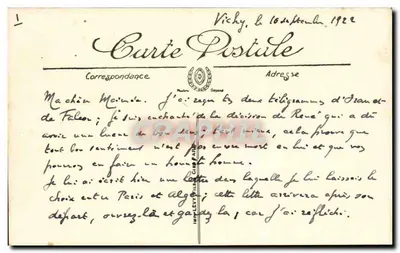 1
Vichy, le 10 septembre 1922
Carte Postale
Correspondance
Adresse
Ma chère Mémée. J'ai reçu tes deux télégrammes d'Isaac et
de Falcon ; je suis enchanté de la décision de René qui a dû
avoir une lueur de tant mieux, cela prouve que
tout bon sentiment n'est pas encore mort en lui et que vous
pourrez en faire un honnête homme.
Je lui ai écrit hier une lettre dans laquelle je lui laissais le
choix entre Paris et Alger ; cette lettre arrivera après son
départ, ouvrez-la et gardez-la, car j'ai réfléchi.